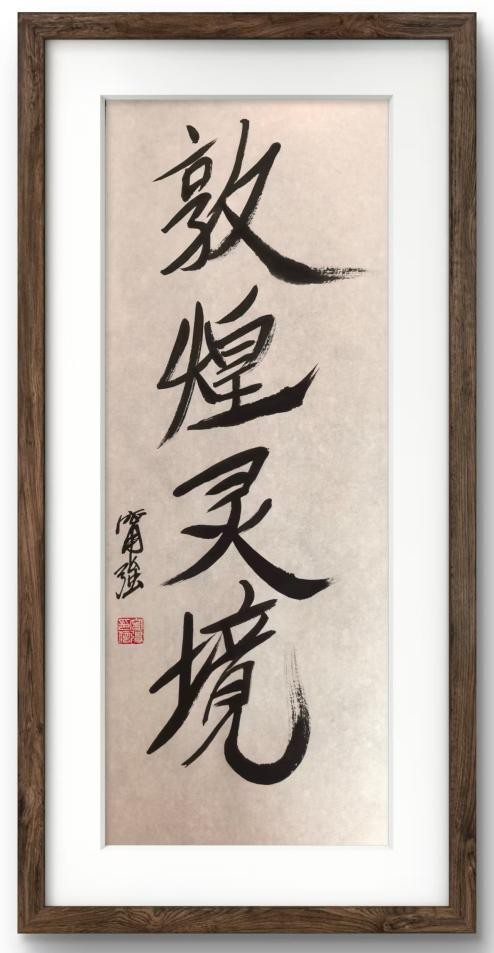 敦煌灵境
甯強